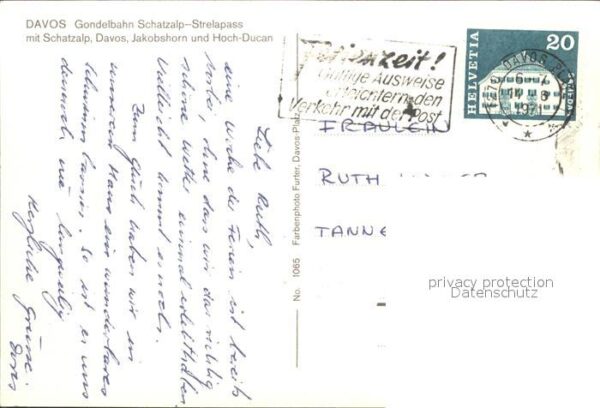 DAVOS Gondelbahn Schatzalp–Strelapass
mit Schatzalp, Davos, Jakobshorn und Hoch-Ducan
Ferienzeit!
Gültige Ausweise
erleichtern den
Verkehr mit der Post
HELVETIA
20
DAVOS
No. 1065 Farbenphoto Furter, Davos-Platz
FRÄULEIN
RUTH
TANNE
privacy protection
Datenschutz
Liebe Ruth,
eine Woche der Ferien ist bereits
vorbei, ohne dass wir das richtig
schöne Wetter einmal erlebt hätten.
Vielleicht kommt es noch.
Zum Glück haben wir in
unserem Haus ein wunderbares
Schwimmbassin. So ist es uns
dennoch nie langweilig
Herzliche Grüsse
Doris